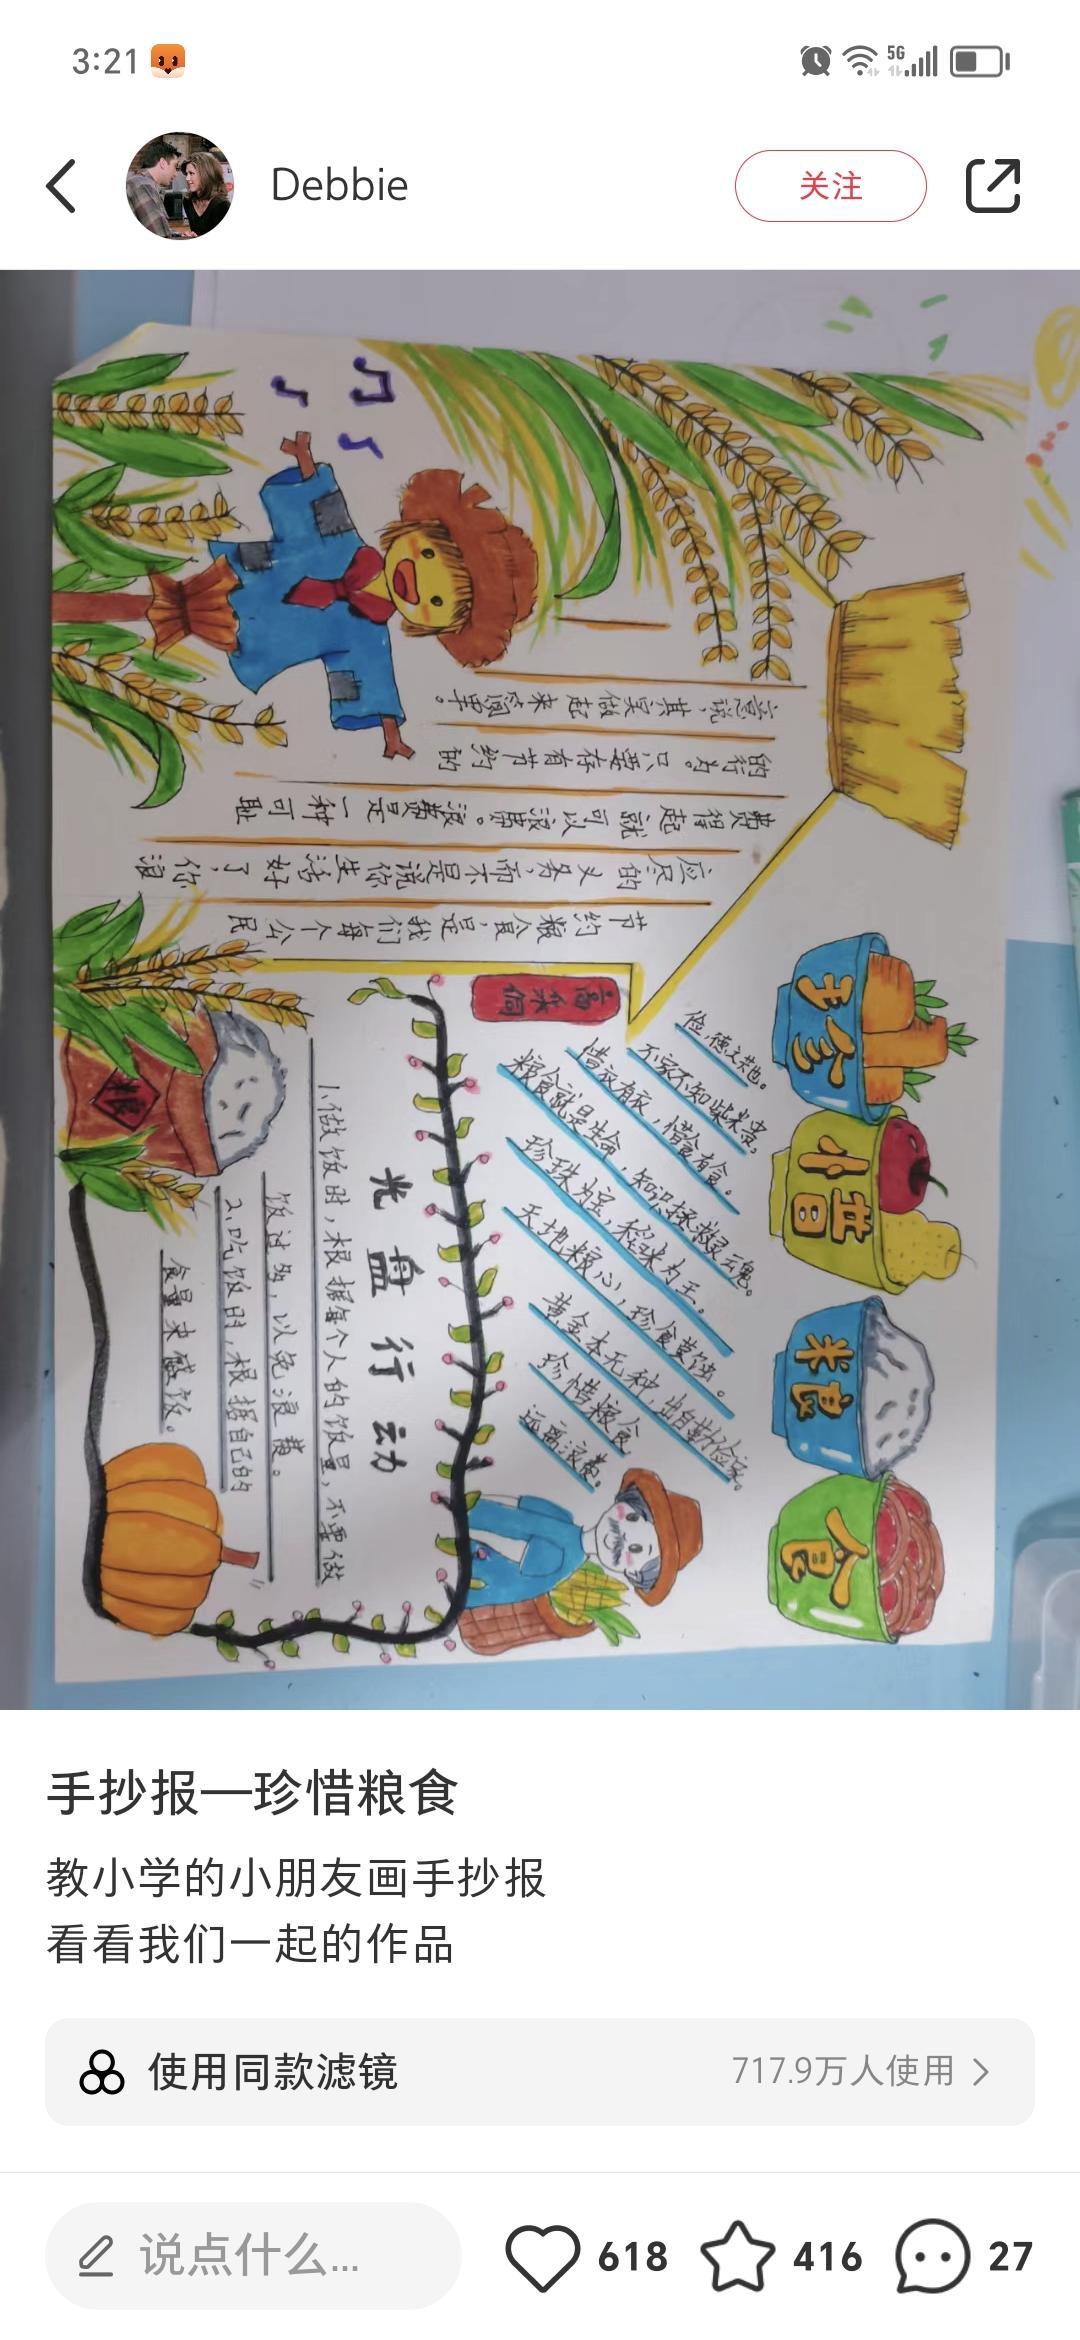 3:21
5G
Debbie
关注
珍惜粮食
节约粮食,是我们每个公民
应尽的义务,而不是说你生活好了,你浪
费得起就可以浪费。浪费是一种可耻
的行为。只要存有节约的
意识,其实做起来简单。
俭,德之共也。
不家不知柴米贵,
惜衣有衣,惜食有食。
粮食就是生命,知识拯救灵魂。
珍珠为宝,稻米为王。
天地粮心,珍食莫蚀。
黄金本无种,出自勤俭家。
珍惜粮食
远离浪费。
光盘行动
1.做饭时,根据每个人的饭量,不要做
饭过多,以免浪费。
2.吃饭时,根据自己的
食量来盛饭。
粮
手抄报—珍惜粮食
教小学的小朋友画手抄报
看看我们一起的作品
使用同款滤镜
717.9万人使用
说点什么...
618
416
27